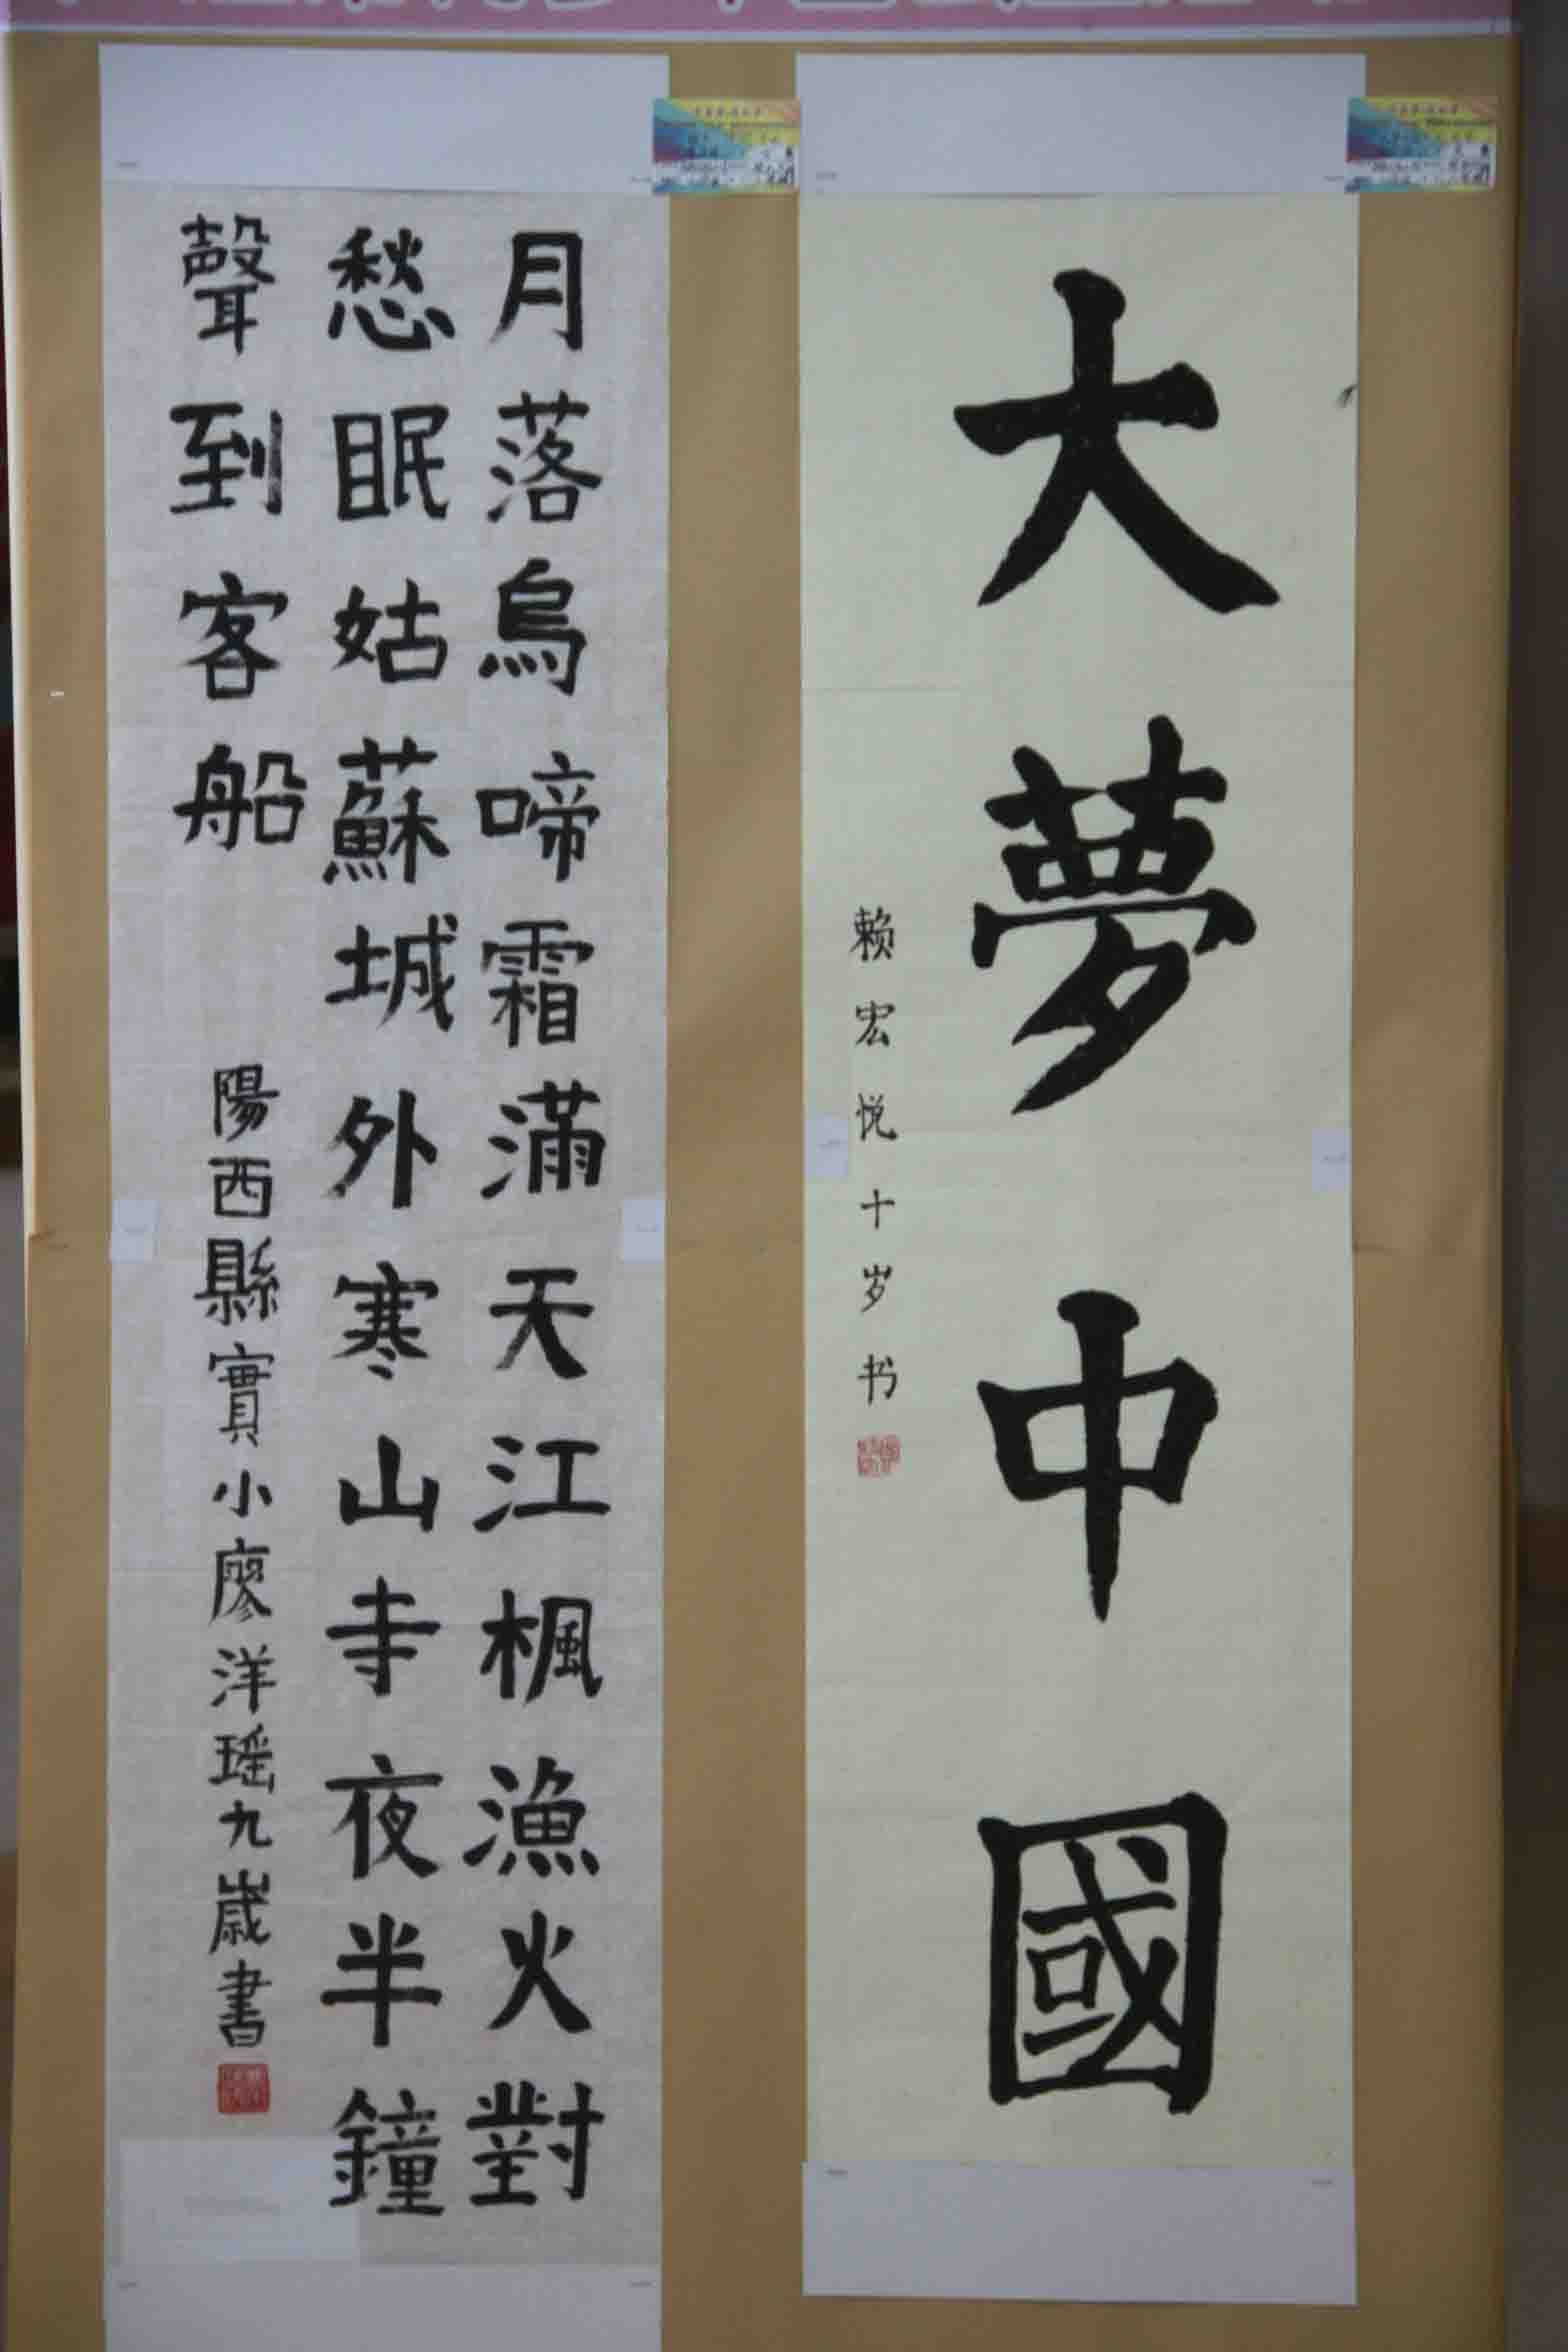 大夢中國
赖宏悦十岁书
月落烏啼霜滿天江楓漁火對
愁眠姑蘇城外寒山寺夜半鐘
聲到客船
陽西縣實小廖洋瑶九歲書